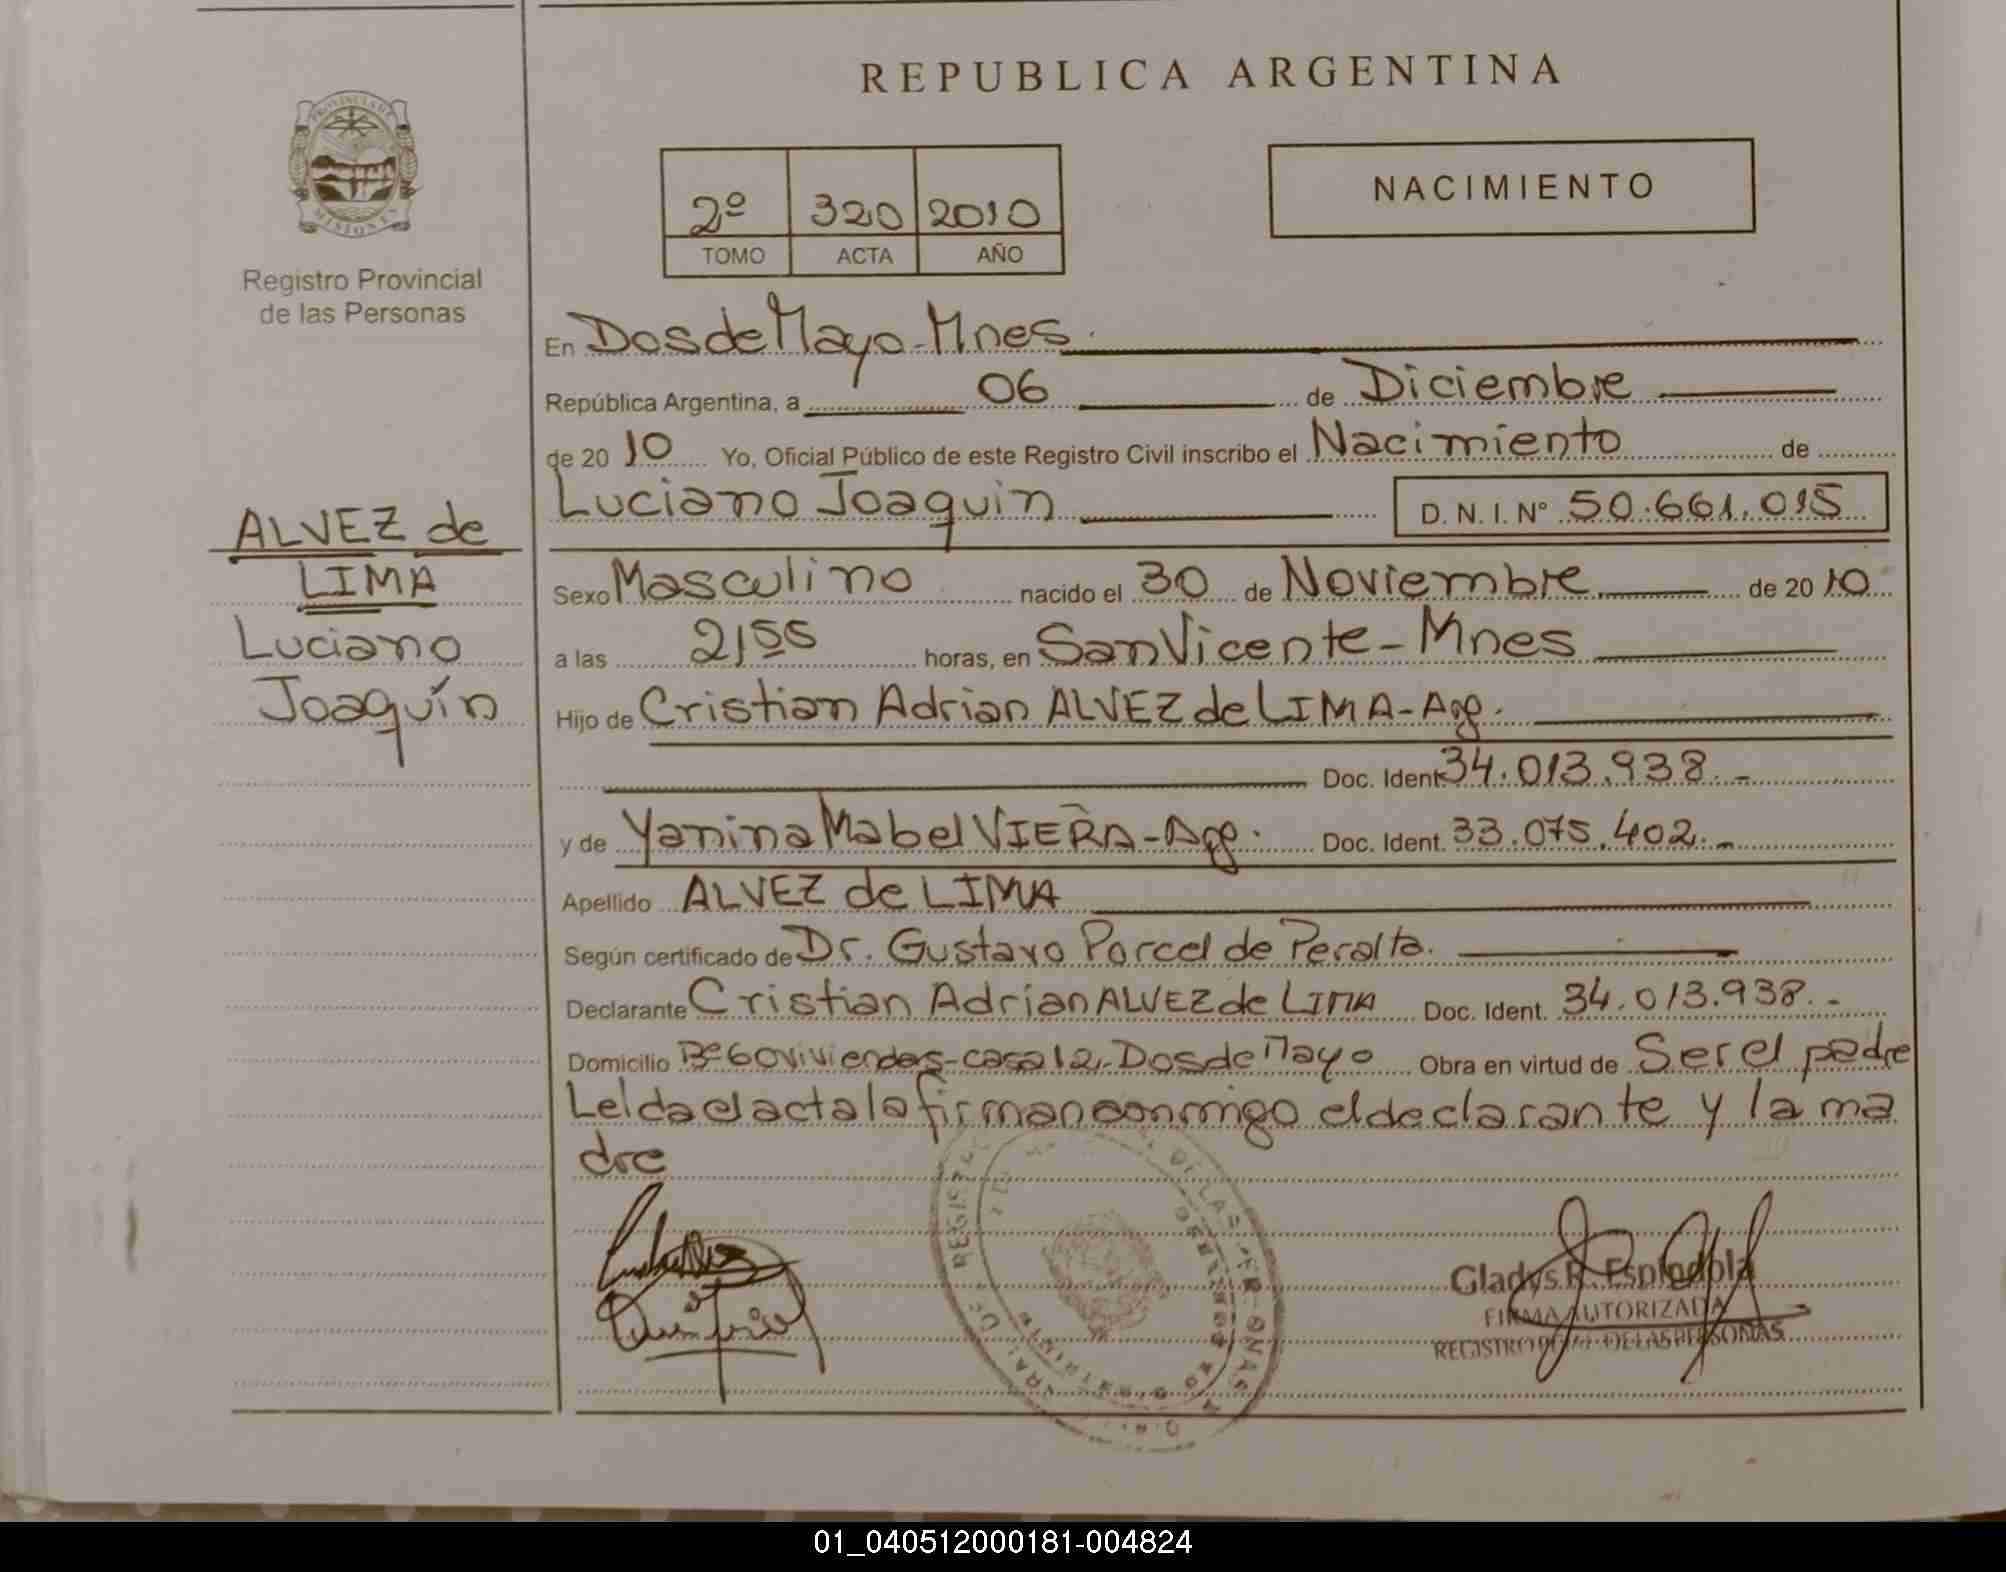 REPUBLICA ARGENTINA
PROVINCIA DE
MISIONES
Registro Provincial
de las Personas
2º 320 2010
TOMO ACTA AÑO
NACIMIENTO
ALVEZ de
LIMA
Luciano
Joaquín
En Dos de Mayo - Mnes.
República Argentina, a 06 de Diciembre
de 2010 Yo, Oficial Público de este Registro Civil inscribo el Nacimiento de
Luciano Joaquin D. N. I. Nº 50.661.015
Sexo Masculino nacido el 30 de Noviembre de 2010
a las 21 55 horas, en San Vicente - Mnes
Hijo de Cristian Adrian ALVEZ de LIMA - Arg.
Doc. Ident. 34.013.938.-
y de Yanina Mabel VIERA - Arg. Doc. Ident. 33.075.402.-
Apellido ALVEZ de LIMA
Según certificado de Dr. Gustavo Porcel de Peralta.
Declarante Cristian Adrian ALVEZ de LIMA Doc. Ident. 34.013.938.-
Domicilio Bº 60 viviendas - casa 12 - Dos de Mayo Obra en virtud de Ser el padre
Leida el acta la firman conmigo el declarante y la ma
dre
Gladys R. Espindola
FIRMA AUTORIZADA
REGISTRO DE LAS PERSONAS
01_040512000181-004824